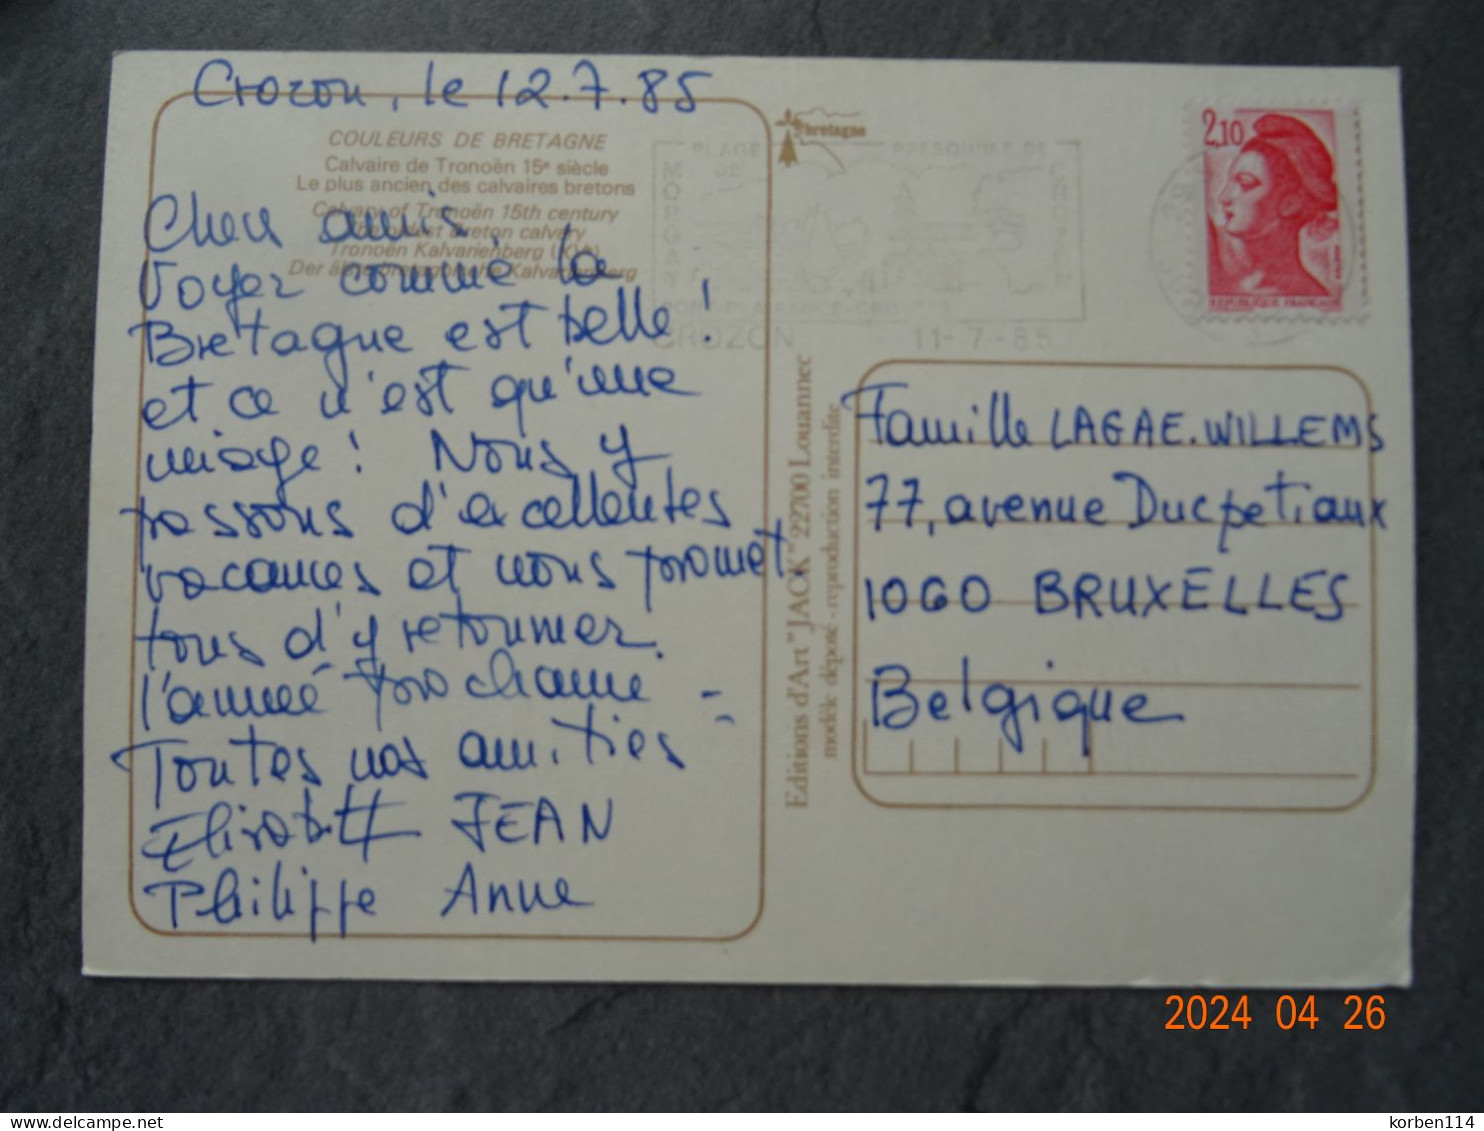 Crozon, le 12.7.85
COULEURS DE BRETAGNE
Calvaire de Tronoën 15e siècle
Le plus ancien des calvaires bretons
Calvary of Tronoën 15th century
The oldest Breton calvary
Tronoën Kalvarienberg (XVI)
Der älteste bretagnische Kalvarienberg
Chers amis,
Voyez comme la
Bretagne est belle !
et ce n'est qu'une
image ! Nous y
passons d'excellentes
vacances et nous promet
tons d'y retourner
l'année prochaine -
Toutes nos amitiés
Elisabeth JEAN
Philippe Anne
bretagne
PLAGE
DE
MORGAT
PRESQU'ILE DE
CROZON
CROZON
11-7-85
2,10
REPUBLIQUE FRANÇAISE
Editions d'Art "JACK" 22700 Louannec
modèle déposé - reproduction interdite
Famille LAGAE.WILLEMS
77, avenue Ducpetiaux
1060 BRUXELLES
Belgique
2024 04 26
korben114